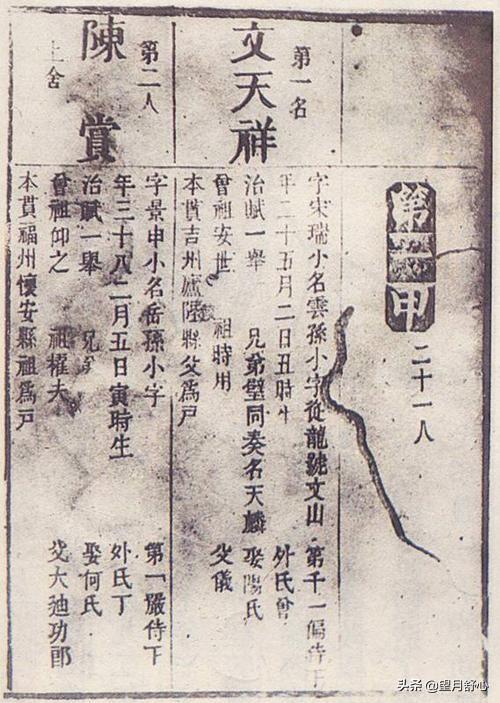 第一甲
二十一人
第一名
文天祥
字宋瑞小名雲孫小字從龍號文山 第千一偏侍下
年二十五月二日丑時生 外氏曾
治賦一舉 兄弟璧同奏名天麟 娶陽氏
曾祖安世 祖時用 父儀
本貫吉州廬陵縣父為戶
第二人
陳賞
上舍
字景申小名岳孫小字 第一嚴侍下
年三十八二月五日寅時生 外氏丁
治賦一舉 兄弟 娶何氏
曾祖仰之 祖權夫 父大廸功郎
本貫福州懷安縣祖為戶
头条 @望月舒心